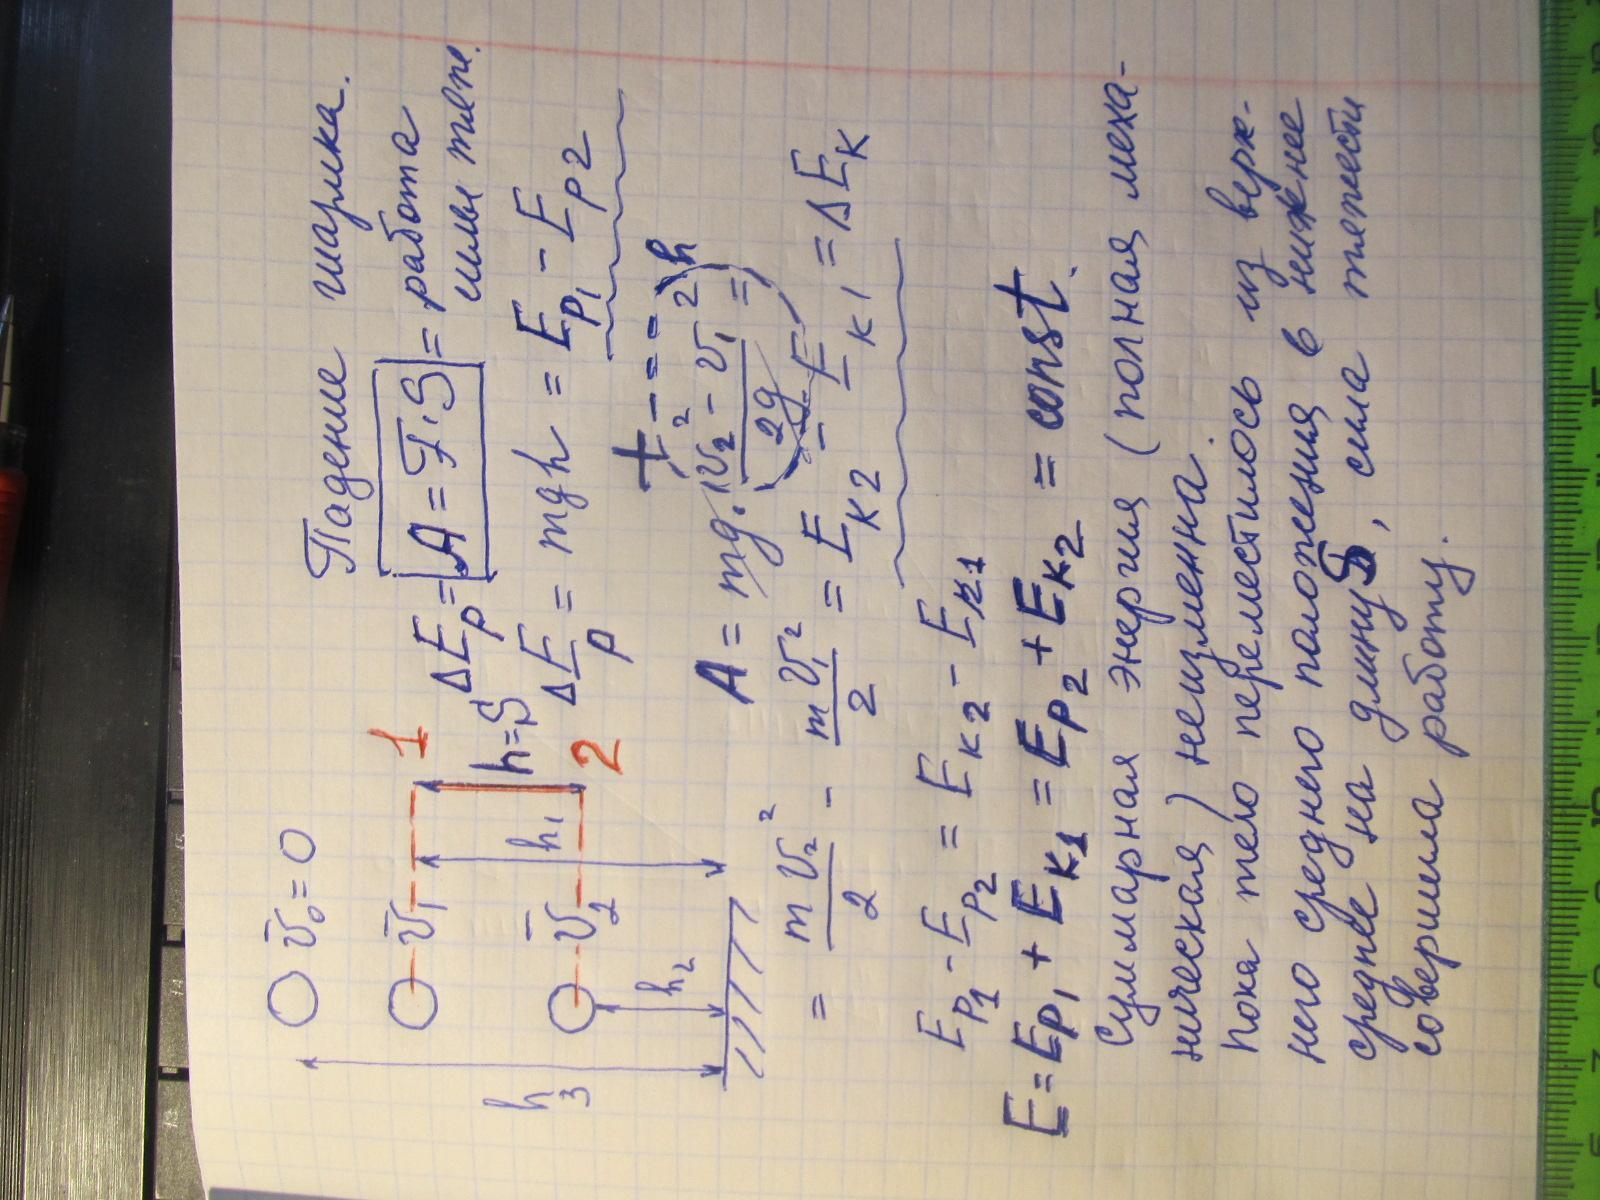 Падение шарика.
v̄₀ = 0
v̄₁
1
v̄₂
2
h = S
h₁
h₂
h₃
ΔEₚ = A = F · S = работа
силы тяж.
ΔEₚ = mgh = Eₚ₁ - Eₚ₂
h
A = mg · (v₂² - v₁²)/2g =
= mv₂²/2 - mv₁²/2 = Eₖ₂ - Eₖ₁ = ΔEₖ
Eₚ₁ - Eₚ₂ = Eₖ₂ - Eₖ₁
E = Eₚ₁ + Eₖ₁ = Eₚ₂ + Eₖ₂ = const.
Суммарная энергия (полная меха-
ническая) неизменна.
Пока тело переместилось из верх-
него среднего положения в нижнее
среднее на длину S, сила тяжести
совершила работу.